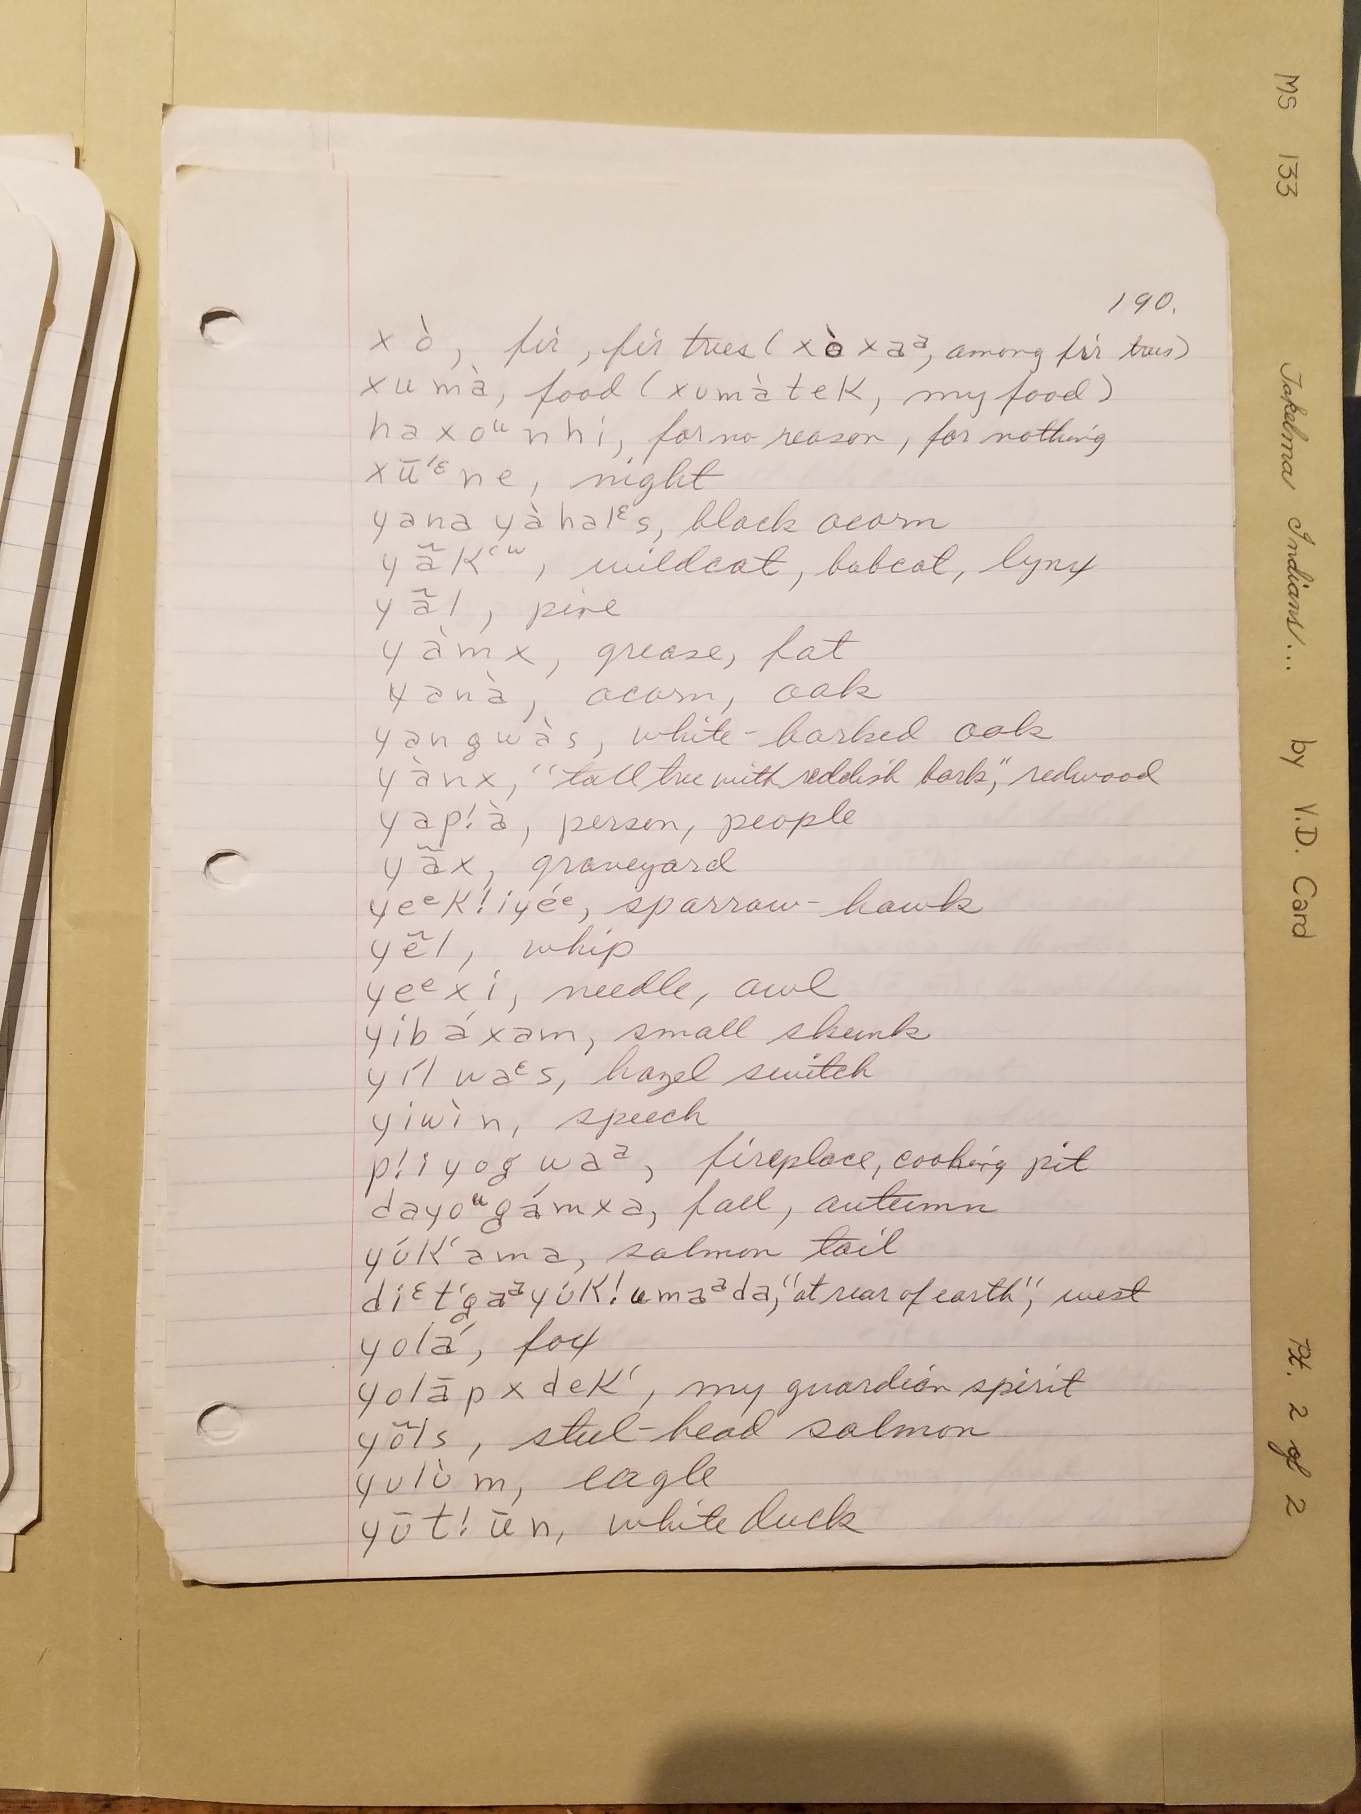 190.
xò, fir, fir trees (xòxaᵃ, among fir trees)
xumà, food (xumàtek, my food)
haxoᵘnhi, for no reason, for nothing
xū́ᵋne, night
yana yàhalᵋs, black acorn
yã̄k‘ʷ, wildcat, bobcat, lynx
yã̄l, pine
yàmx, grease, fat
yanà, acorn, oak
yangwàs, white-barked oak
yànx, "tall tree with reddish bark," redwood
yap!à, person, people
yã̄x, graveyard
yeᵉk!iyéᵉ, sparrow-hawk
yẽl, whip
yeᵉxi, needle, awl
yibáxam, small skunk
yílwaᵋs, hazel switch
yiwìn, speech
p!iyogwaᵃ, fireplace, cooking pit
dayoᵘgámxa, fall, autumn
yúk‘ama, salmon tail
diᵋt‘gaᵃyúk!umaᵃda, "at rear of earth", west
yolá, fox
yolāpxdek‘, my guardian spirit
yõls, steel-head salmon
yulùm, eagle
yūt!ūn, white duck
MS 133 Takelma Indians... by V.D. Card Pt. 2 of 2